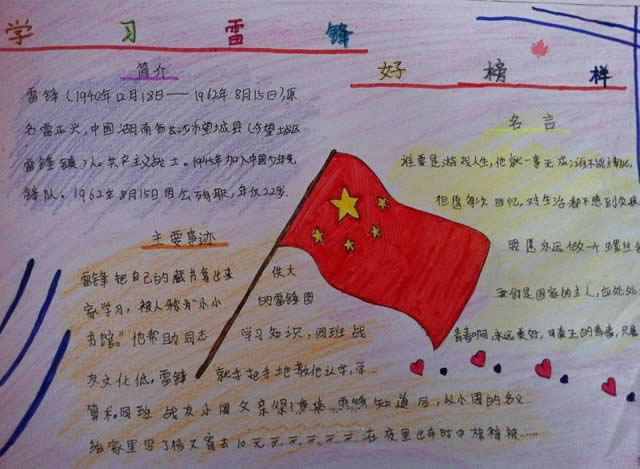 学习雷锋
好榜样
简介
雷锋(1940年12月18日——1962年8月15日),原
名雷正兴,中国湖南省长沙市望城县(今望城区
雷锋镇)人。共产主义战士。1945年加入中国少年先
锋队。1962年8月15日因公殉职,年仅22岁.
主要事迹
雷锋把自己的藏书拿出来 供大
家学习,被人称为"小小 的雷锋图
书馆。"他帮助同志 学习知识,同班战
友文化低,雷锋 就手把手地教他认字,学
算术.同班战友小周父亲得 雷锋知道后,以小周的名义
给家里写了信又寄去10元 在夜里出车时中棉裤被……
名言
谁要是游戏人生,他就一事无成;谁不能主宰
但愿每次回忆,对生活都不感到负疚
我愿永远做一个螺丝
我们是国家的主人,应处处
青春啊,永远美好,可真正的青春,只属